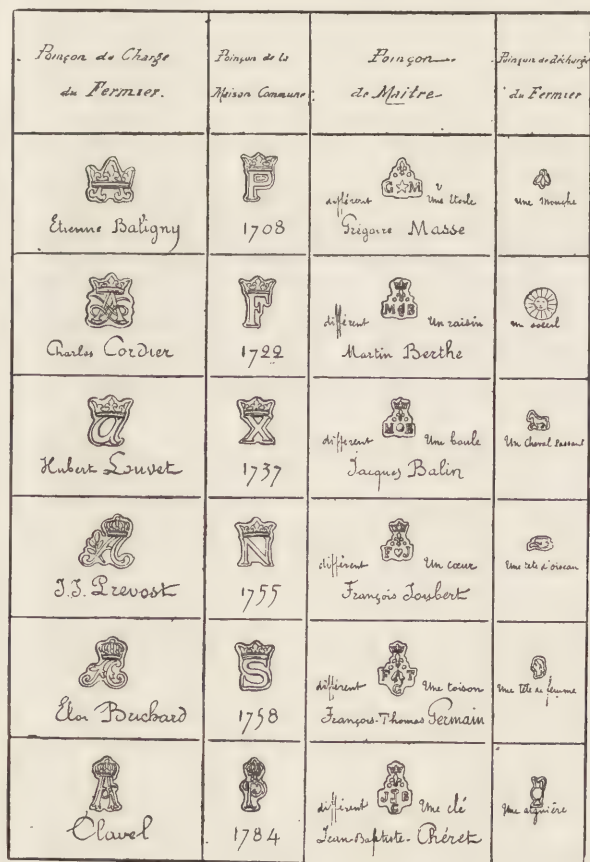 Poinçon de Charge
du Fermier.
Poinçon de la
Maison Commune
Poinçon
de Maitre
Poinçon de décharge
du Fermier
Etienne Baligny
P
1708
différent
G M
Une étoile
Grégoire Masse
Une Mouche
A
Charles Cordier
F
1722
différent
M B
Un raisin
Martin Berthe
un soleil
A
Hubert Louvet
X
1737
différent
Une boule
Jacques Balin
Un Cheval passant
A
J.J. Prevost
N
1755
différent
F J
Un cœur
François Joubert
Une tete d'oiseau
A
Eloi Brichard
S
1758
différent
F T
G
Une toison
François-Thomas Germain
Une tête de femme
A
Clavel
P
1784
différent
J B
C
Une clé
Jean-Baptiste-Chéret
Une aiguière